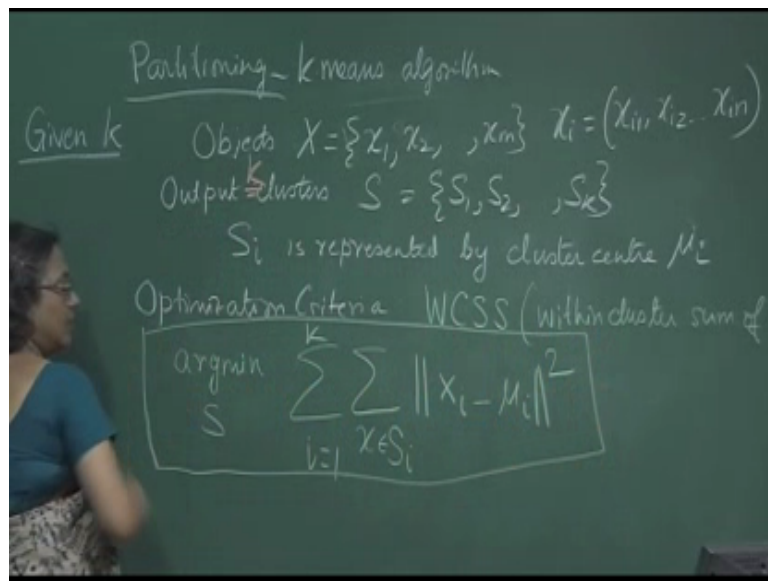 Partitioning - k means algorithm
Given k Objects X = {x₁, x₂, , xm} xᵢ = (xᵢ₁, xᵢ₂ .. xᵢn)
Output k clusters S = {S₁, S₂, , Sk}
Sᵢ is represented by cluster centre μᵢ
Optimization Criteria WCSS (within cluster sum of
argmin S ∑ i=1 k ∑ x∈Sᵢ ‖xᵢ - μᵢ‖²